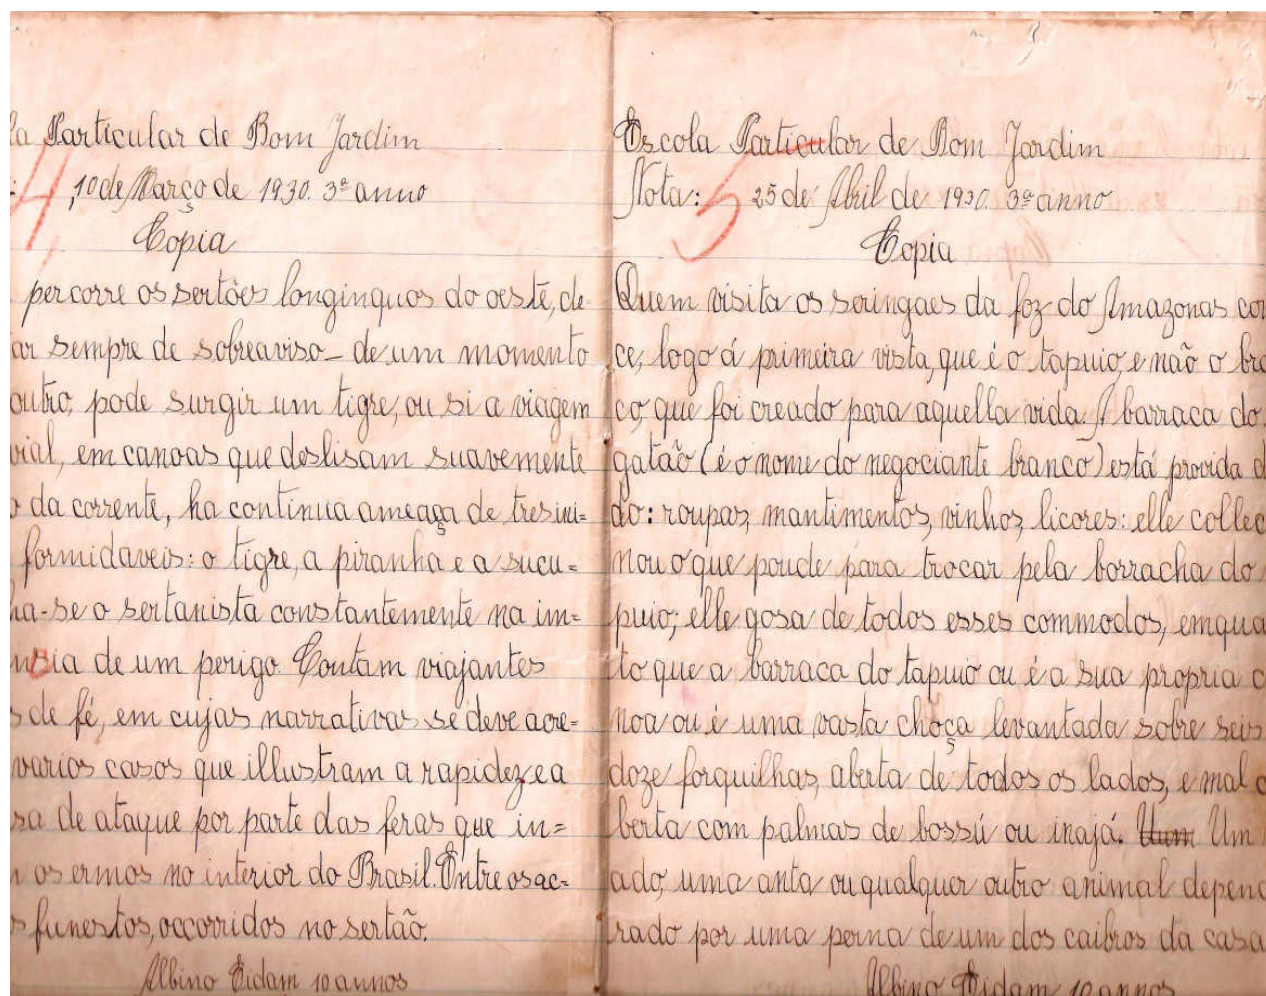 la Particular de Bom Jardim
: 4, 10 de Março de 1930. 3º anno
Copia
percorre os sertões longinquos do oeste, de-
ar sempre de sobreaviso_ de um momento
outro, pode surgir um tigre, ou si a viagem
vial, em canoas que deslisam suavemente
o da corrente, ha continua ameaça de tres ini=
formidaveis: o tigre, a piranha e a sucu=
ha-se o sertanista constantemente na im=
ncia de um perigo. Contam viajantes
s de fé, em cujas narrativas se deve acre=
varios casos que illustram a rapidez e a
sa de ataque por parte das feras que in=
m os ermos no interior do Brasil. Entre os ac=
s funestos, occorridos no sertão.
Albino Eidam 10 annos
Escola Particular de Bom Jardim
Nota: 5 25 de Abril de 1930. 3º anno
Copia
Quem visita os seringaes da foz do Amazonas con
ce, logo á primeira vista, que é o tapuio, e não o bra
co, que foi creado para aquella vida. A barraca do
gatão (é o nome do negociante branco) está provida d
do: roupas, mantimentos, vinhos, licores: elle collec
nou o que poude para trocar pela borracha do
puio; elle gosa de todos esses commodos, emqua
to que a barraca do tapuio ou é a sua propria c
noa ou é uma vasta choça levantada sobre seis
doze forquilhas, aberta de todos os lados, e mal c
berta com palmas de bossú ou inajá. Uum Um
ado, uma anta ou qualquer outro animal depend
rado por uma perna de um dos caibros da casa
Albino Eidam 10 annos